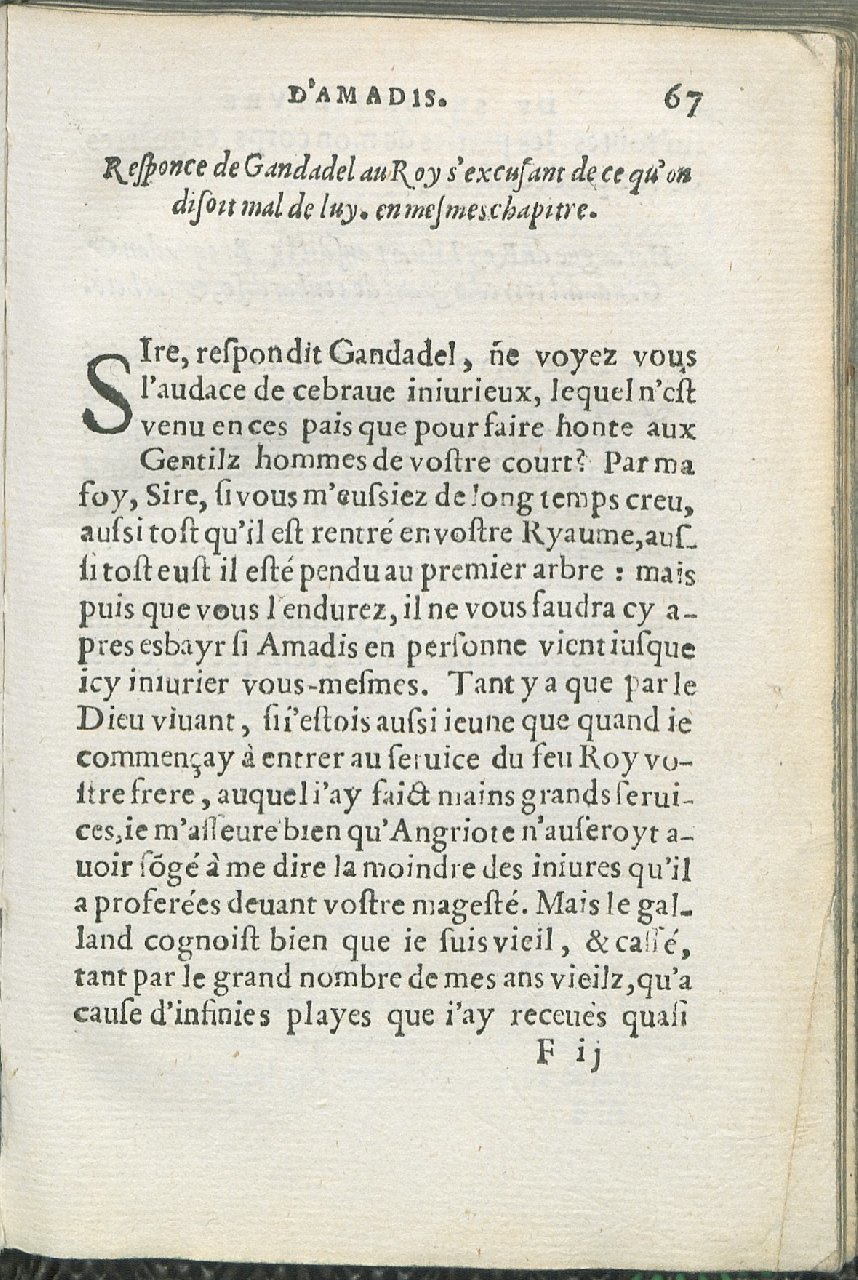 D'AMADIS. 67
Reſponce de Gandadel au Roy s'excuſant de ce qu'on
diſoit mal de luy. en meſmes chapitre.
SIre, reſpondit Gandadel, ñe voyez vous
l'audace de ce braue iniurieux, lequel n'eſt
venu en ces pais que pour faire honte aux
Gentilz hommes de voſtre court? Par ma
foy, Sire, ſi vous m'euſsiez de long temps creu,
auſsi toſt qu'il eſt rentré en voſtre Ryaume, auſ-
ſi toſt euſt il eſté pendu au premier arbre : mais
puis que vous l'endurez, il ne vous faudra cy a-
pres esbayr ſi Amadis en perſonne vient iuſque
icy iniurier vous-meſmes. Tant y a que par le
Dieu viuant, ſi i'eſtois auſsi ieune que quand ie
commençay à entrer au ſeruice du feu Roy vo-
ſtre frere, auquel i'ay faict mains grands ſerui-
ces, ie m'aſſeure bien qu'Angriote n'auſeroyt a-
uoir ſõgé à me dire la moindre des iniures qu'il
a proferées deuant voſtre mageſté. Mais le gal-
land cognoiſt bien que ie ſuis vieil, & caſſé,
tant par le grand nombre de mes ans vieilz, qu'a
cauſe d'infinies playes que i'ay receues quaſi
F ij